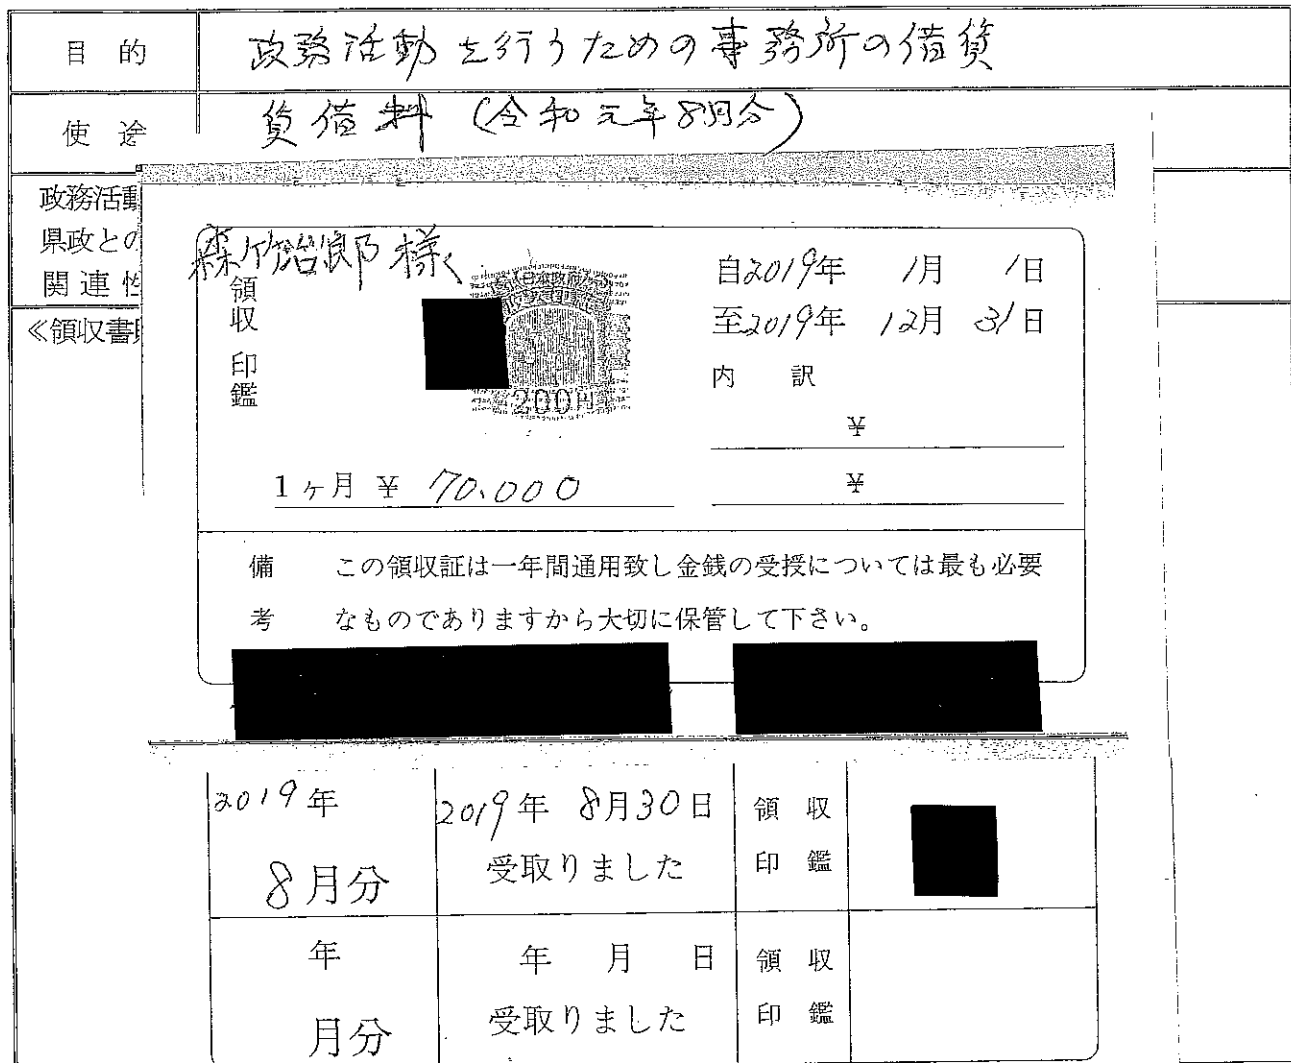 目的 政務活動を行うための事務所の借賃
使途 賃借料 (令和元年8月分)
政務活動
県政との
関連性
≪領収書
様
領収印鑑
200円
自2019年 1月 1日
至2019年 12月 31日
内訳
¥
1ヶ月 ¥ 70.000
¥
備考 この領収証は一年間通用致し金銭の受授については最も必要
なものでありますから大切に保管して下さい。
2019年 8月分
2019年 8月30日 受取りました
領収印鑑
年 月分
年 月 日 受取りました
領収印鑑